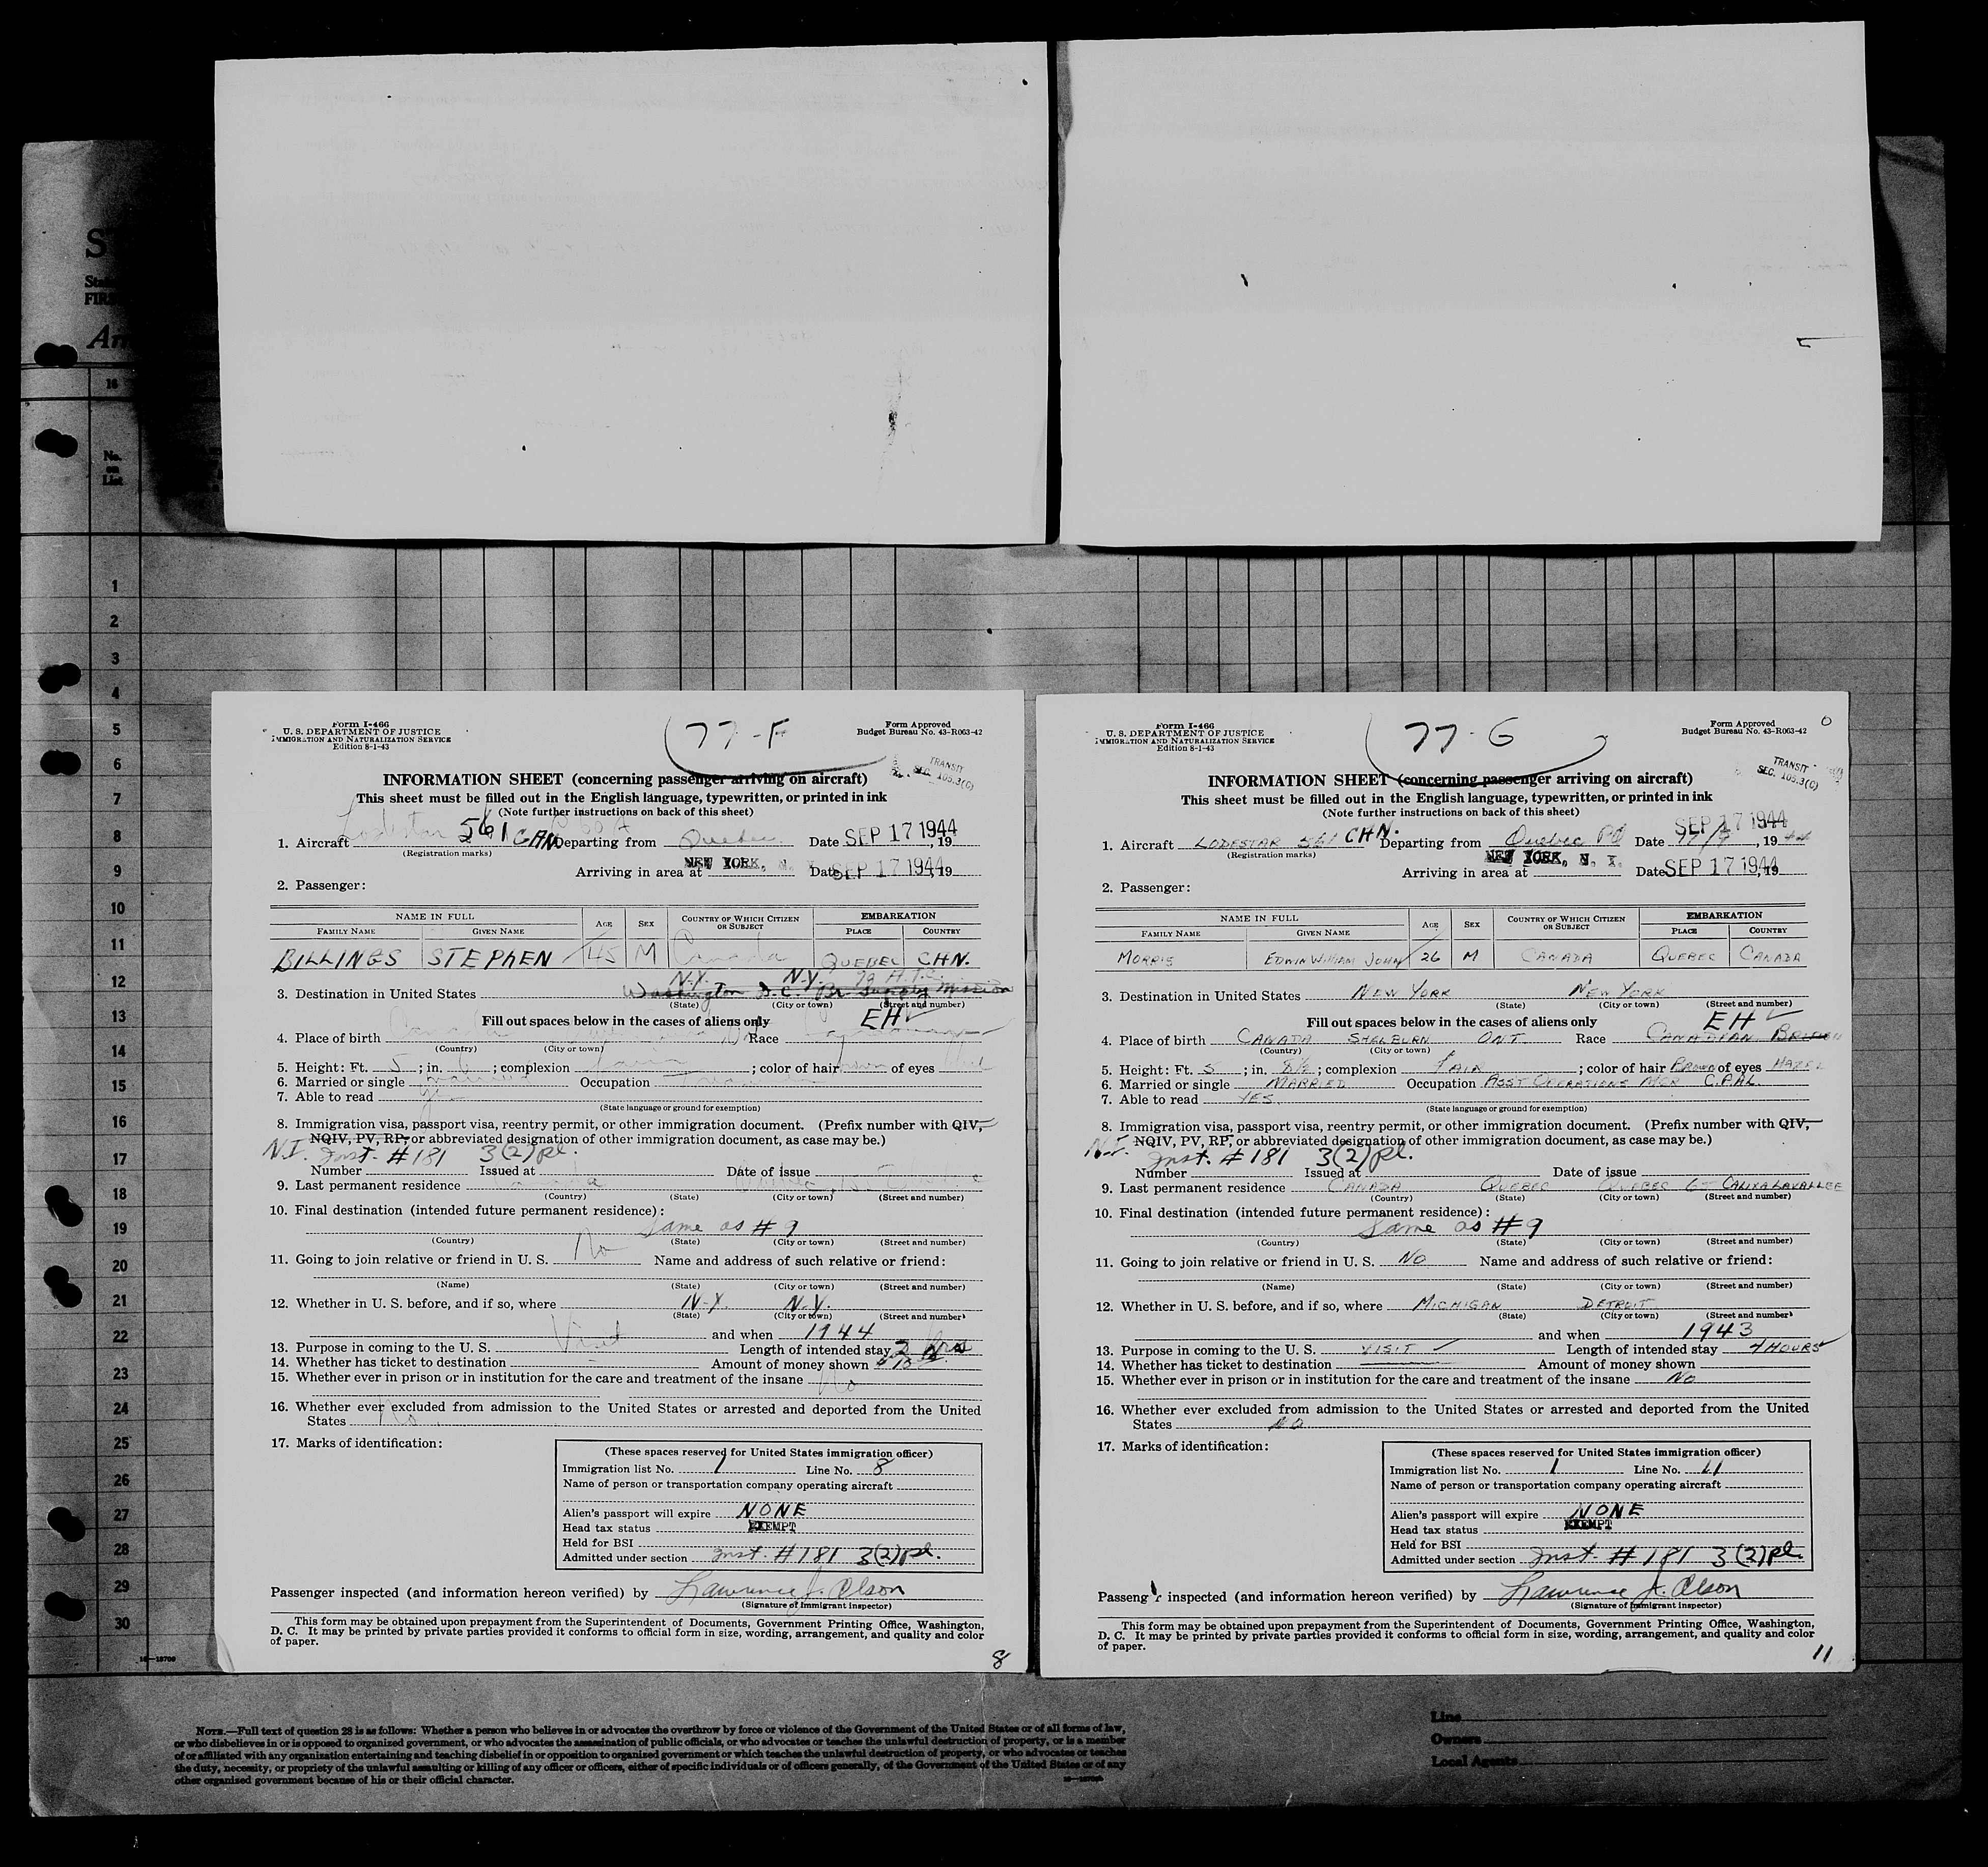 No.
on
List
1
2
3
4
5
6
7
8
9
10
11
12
13
14
15
16
17
18
19
20
21
22
23
24
25
26
27
28
29
30
Form I-466
U. S. DEPARTMENT OF JUSTICE
IMMIGRATION AND NATURALIZATION SERVICE
Edition 8-1-43
77-F
Form Approved
Budget Bureau No. 43-R063-42
TRANSIT
SEC. 105.3(C)
INFORMATION SHEET (concerning passenger arriving on aircraft)
This sheet must be filled out in the English language, typewritten, or printed in ink
(Note further instructions on back of this sheet)
1. Aircraft Lodestar 561 CAN Departing from Quebec Date SEP 17 1944, 19
(Registration marks)
Arriving in area at NEW YORK, N. Y. Date SEP 17 1944, 19
2. Passenger:
NAME IN FULL AGE SEX COUNTRY OF WHICH CITIZEN OR SUBJECT EMBARKATION
FAMILY NAME GIVEN NAME PLACE COUNTRY
BILLINGS STEPHEN 45 M Canada QUEBEC CHN.
N.Y. N.Y.
3. Destination in United States Washington D.C. Br Supply Mission
(State) (City or town) (Street and number)
Fill out spaces below in the cases of aliens only EH
4. Place of birth Race
(Country) (City or town)
5. Height: Ft. 5; in. ; complexion ; color of hair of eyes
6. Married or single Occupation
7. Able to read yes
(State language or ground for exemption)
8. Immigration visa, passport visa, reentry permit, or other immigration document. (Prefix number with QIV,
NQIV, PV, RP, or abbreviated designation of other immigration document, as case may be.)
N.I. Inst. #181 3(2)pl.
Number Issued at Date of issue
9. Last permanent residence Canada
(Country) (State) (City or town) (Street and number)
10. Final destination (intended future permanent residence):
Same as #9
(Country) (State) (City or town) (Street and number)
11. Going to join relative or friend in U. S. No Name and address of such relative or friend:
(Name) (State) (City or town) (Street and number)
12. Whether in U. S. before, and if so, where N.Y. N.Y.
(State) (City or town) (Street and number)
and when 1944
13. Purpose in coming to the U. S. Visit Length of intended stay 2 hrs
14. Whether has ticket to destination Amount of money shown
15. Whether ever in prison or in institution for the care and treatment of the insane No
16. Whether ever excluded from admission to the United States or arrested and deported from the United
States No
17. Marks of identification:
(These spaces reserved for United States immigration officer)
Immigration list No. 1 Line No. 8
Name of person or transportation company operating aircraft
Alien's passport will expire NONE
Head tax status EXEMPT
Held for BSI
Admitted under section Inst. #181 3(2)pl.
Passenger inspected (and information hereon verified) by Lawrence J. Olson
(Signature of Immigrant inspector)
This form may be obtained upon prepayment from the Superintendent of Documents, Government Printing Office, Washington,
D. C. It may be printed by private parties provided it conforms to official form in size, wording, arrangement, and quality and color
of paper.
8
Form I-466
U. S. DEPARTMENT OF JUSTICE
IMMIGRATION AND NATURALIZATION SERVICE
Edition 8-1-43
77-G
Form Approved
Budget Bureau No. 43-R063-42
TRANSIT
SEC. 105.3(C)
INFORMATION SHEET (concerning passenger arriving on aircraft)
This sheet must be filled out in the English language, typewritten, or printed in ink
(Note further instructions on back of this sheet)
SEP 17 1944
1. Aircraft LODESTAR 561 CHN. Departing from Quebec PQ Date 17/9, 1944
(Registration marks)
Arriving in area at NEW YORK, N. Y. Date SEP 17 1944, 19
2. Passenger:
NAME IN FULL AGE SEX COUNTRY OF WHICH CITIZEN OR SUBJECT EMBARKATION
FAMILY NAME GIVEN NAME PLACE COUNTRY
MORRIS EDWIN WILLIAM JOHN 26 M CANADA QUEBEC CANADA
3. Destination in United States NEW YORK NEW YORK
(State) (City or town) (Street and number)
Fill out spaces below in the cases of aliens only EH
4. Place of birth CANADA SHELBURN ONT. Race CANADIAN
(Country) (City or town)
5. Height: Ft. 5; in. 8½; complexion FAIR; color of hair BROWN of eyes HAZEL
6. Married or single MARRIED Occupation ASST OPERATIONS MGR C.P.A.L.
7. Able to read YES.
(State language or ground for exemption)
8. Immigration visa, passport visa, reentry permit, or other immigration document. (Prefix number with QIV,
NQIV, PV, RP, or abbreviated designation of other immigration document, as case may be.)
N.I. Inst. #181 3(2)pl.
Number Issued at Date of issue
9. Last permanent residence CANADA QUEBEC QUEBEC 65 CALIXA LAVALLEE
(Country) (State) (City or town) (Street and number)
10. Final destination (intended future permanent residence):
Same as #9
(Country) (State) (City or town) (Street and number)
11. Going to join relative or friend in U. S. NO Name and address of such relative or friend:
(Name) (State) (City or town) (Street and number)
12. Whether in U. S. before, and if so, where MICHIGAN DETROIT
(State) (City or town) (Street and number)
and when 1943
13. Purpose in coming to the U. S. VISIT Length of intended stay 4 HOURS
14. Whether has ticket to destination Amount of money shown
15. Whether ever in prison or in institution for the care and treatment of the insane NO
16. Whether ever excluded from admission to the United States or arrested and deported from the United
States NO
17. Marks of identification:
(These spaces reserved for United States immigration officer)
Immigration list No. 1 Line No. 11
Name of person or transportation company operating aircraft
Alien's passport will expire NONE
Head tax status EXEMPT
Held for BSI
Admitted under section Inst. #181 3(2)pl.
Passenger inspected (and information hereon verified) by Lawrence J. Olson
(Signature of Immigrant inspector)
This form may be obtained upon prepayment from the Superintendent of Documents, Government Printing Office, Washington,
D. C. It may be printed by private parties provided it conforms to official form in size, wording, arrangement, and quality and color
of paper.
11
NOTE.—Full text of question 28 is as follows: Whether a person who believes in or advocates the overthrow by force or violence of the Government of the United States or of all forms of law,
or who disbelieves in or is opposed to organized government, or who advocates the assassination of public officials, or who advocates or teaches the unlawful destruction of property, or is a member
of or affiliated with any organization entertaining and teaching disbelief in or opposition to organized government or which teaches the unlawful destruction of property, or who advocates or teaches
the duty, necessity, or propriety of the unlawful assaulting or killing of any officer or officers, either of specific individuals or of officers generally, of the Government of the United States or of any
other organized government because of his or their official character.
Line
Owners
Local Agents